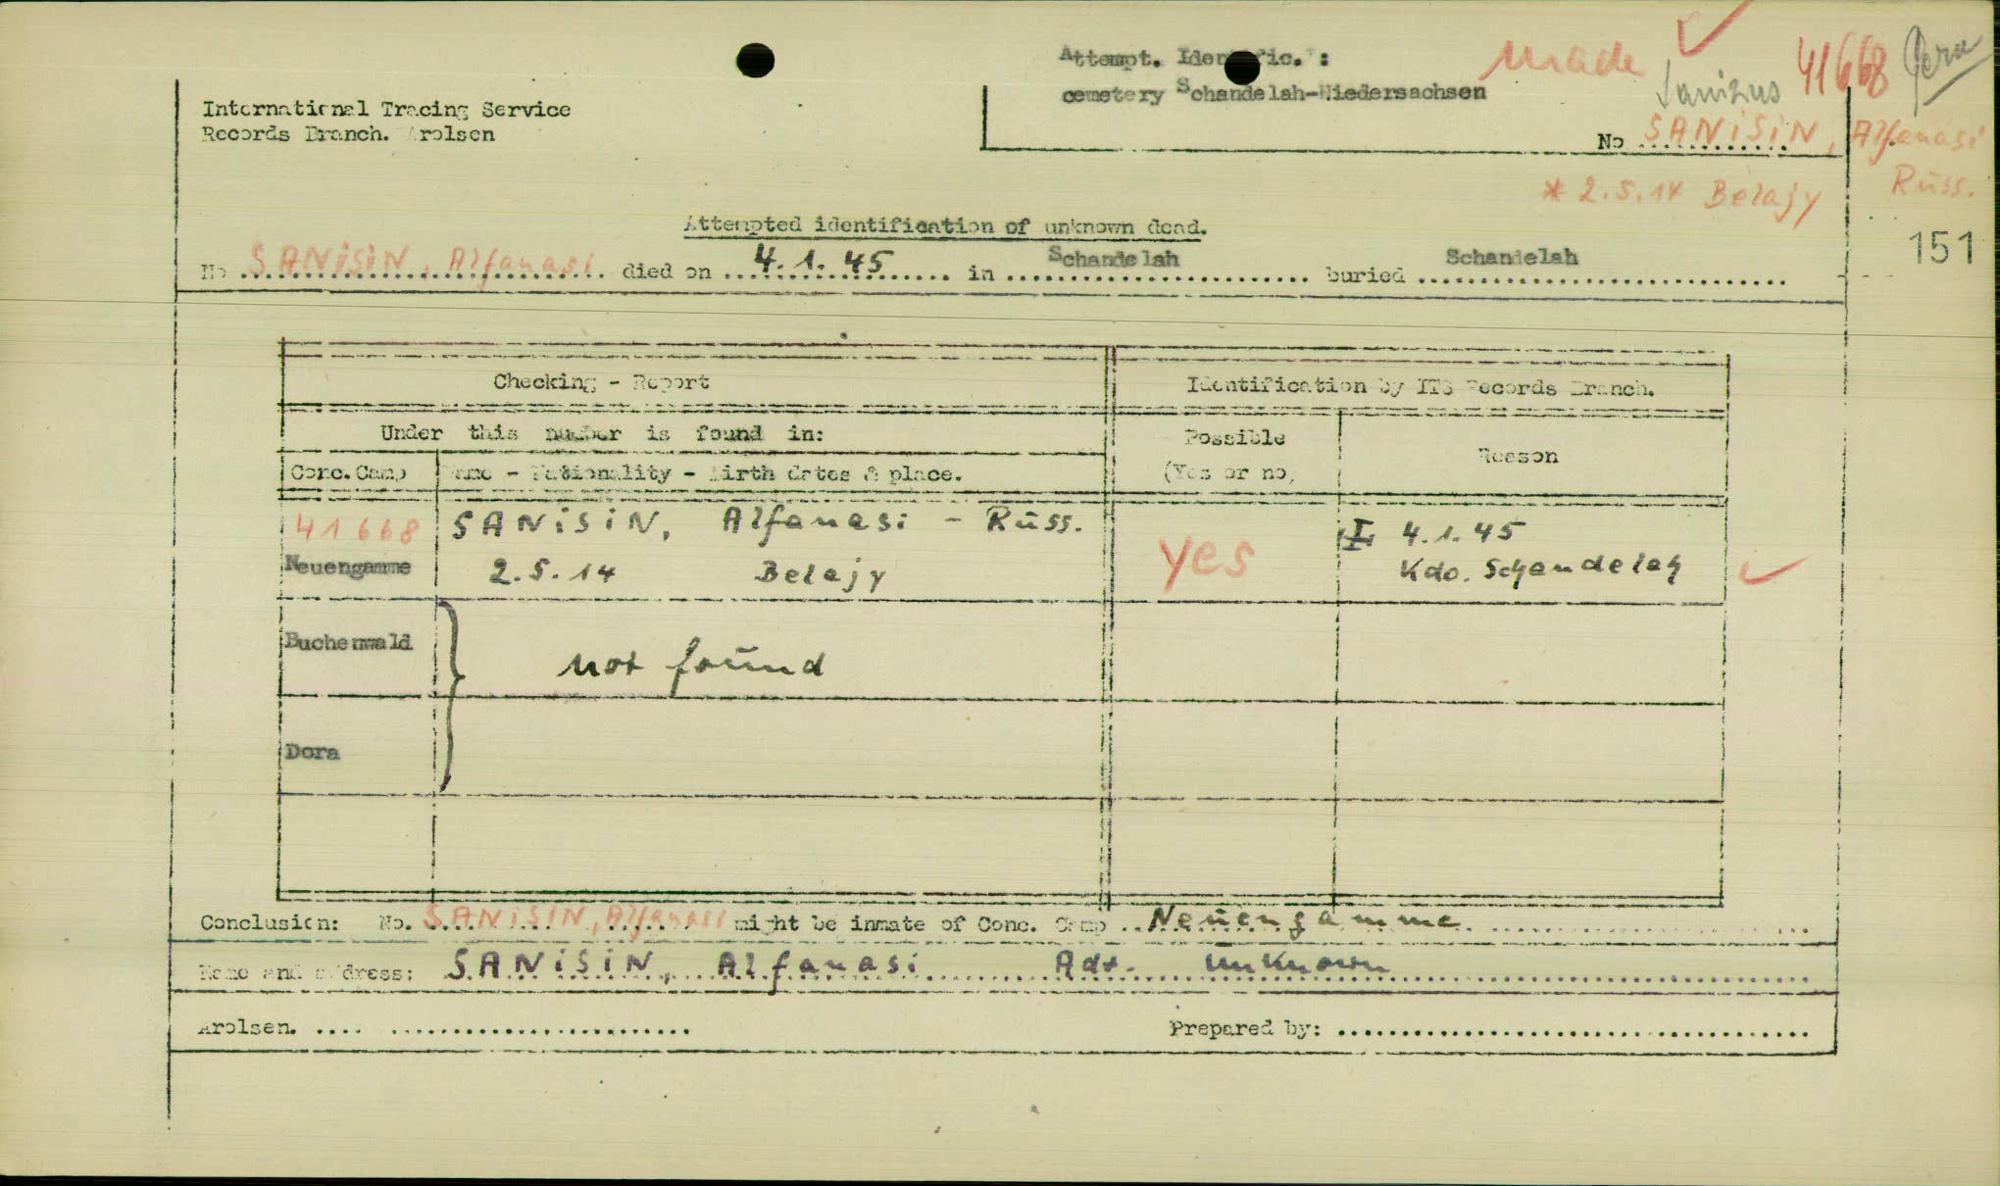 Attempt. Identific. :
made
41668
cemetery Schandelah-Niedersachsen
International Tracing Service
Records Branch. Arolsen
No SANiSiN, Alfanasi
* 2.5.14 Belajy Russ.
Attempted identification of unknown dead.
151
No SANiSiN, Alfanasi died on 4.1.45 in Schandelah buried Schandelah
Checking - Report
Identification by ITS Records Branch.
Under this number is found in:
Possible
(Yes or no)
Reason
Conc. Camp
Name - Nationality - Birth dates & place.
41668
Neuengamme
SANiSiN, Alfanasi - Russ.
2.5.14 Belajy
yes
4.1.45
Kdo. Schandelah
Buchenwald
not found
Dora
Conclusion: No. SANiSiN, Alfanasi might be inmate of Conc. Camp Neuengamme
Name and address: SANiSiN, Alfanasi Adr. unknown
Arolsen. .... ........................ Prepared by: .....................................